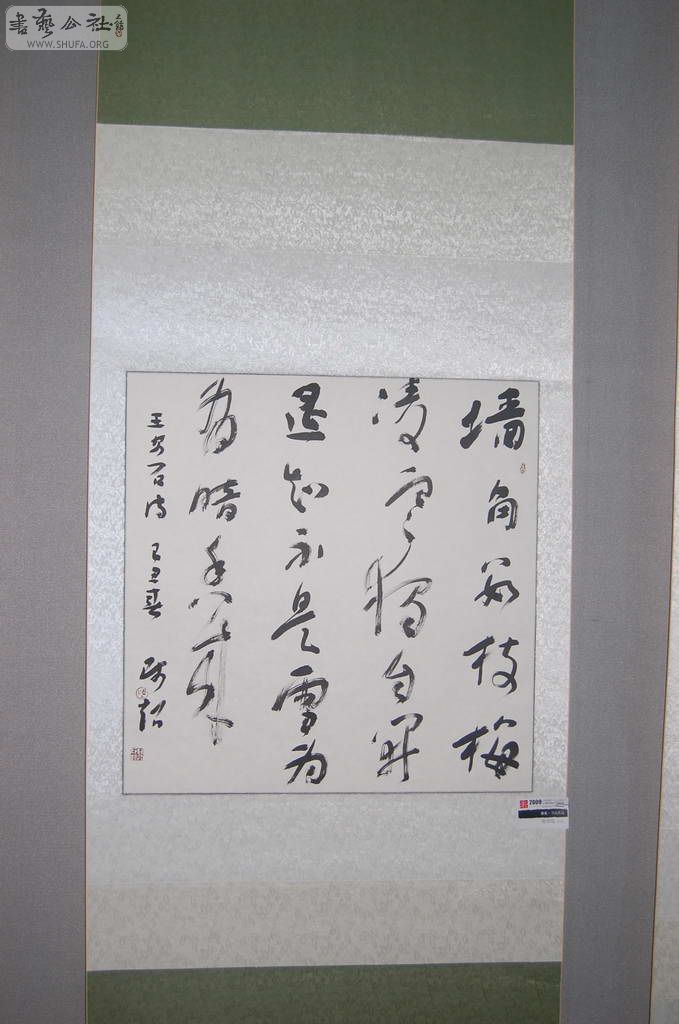 書藝公社
WWW.SHUFA.ORG
墙角数枝梅
凌寒獨自開
遥知不是雪为
有暗香来
王安石诗 己丑春
2009